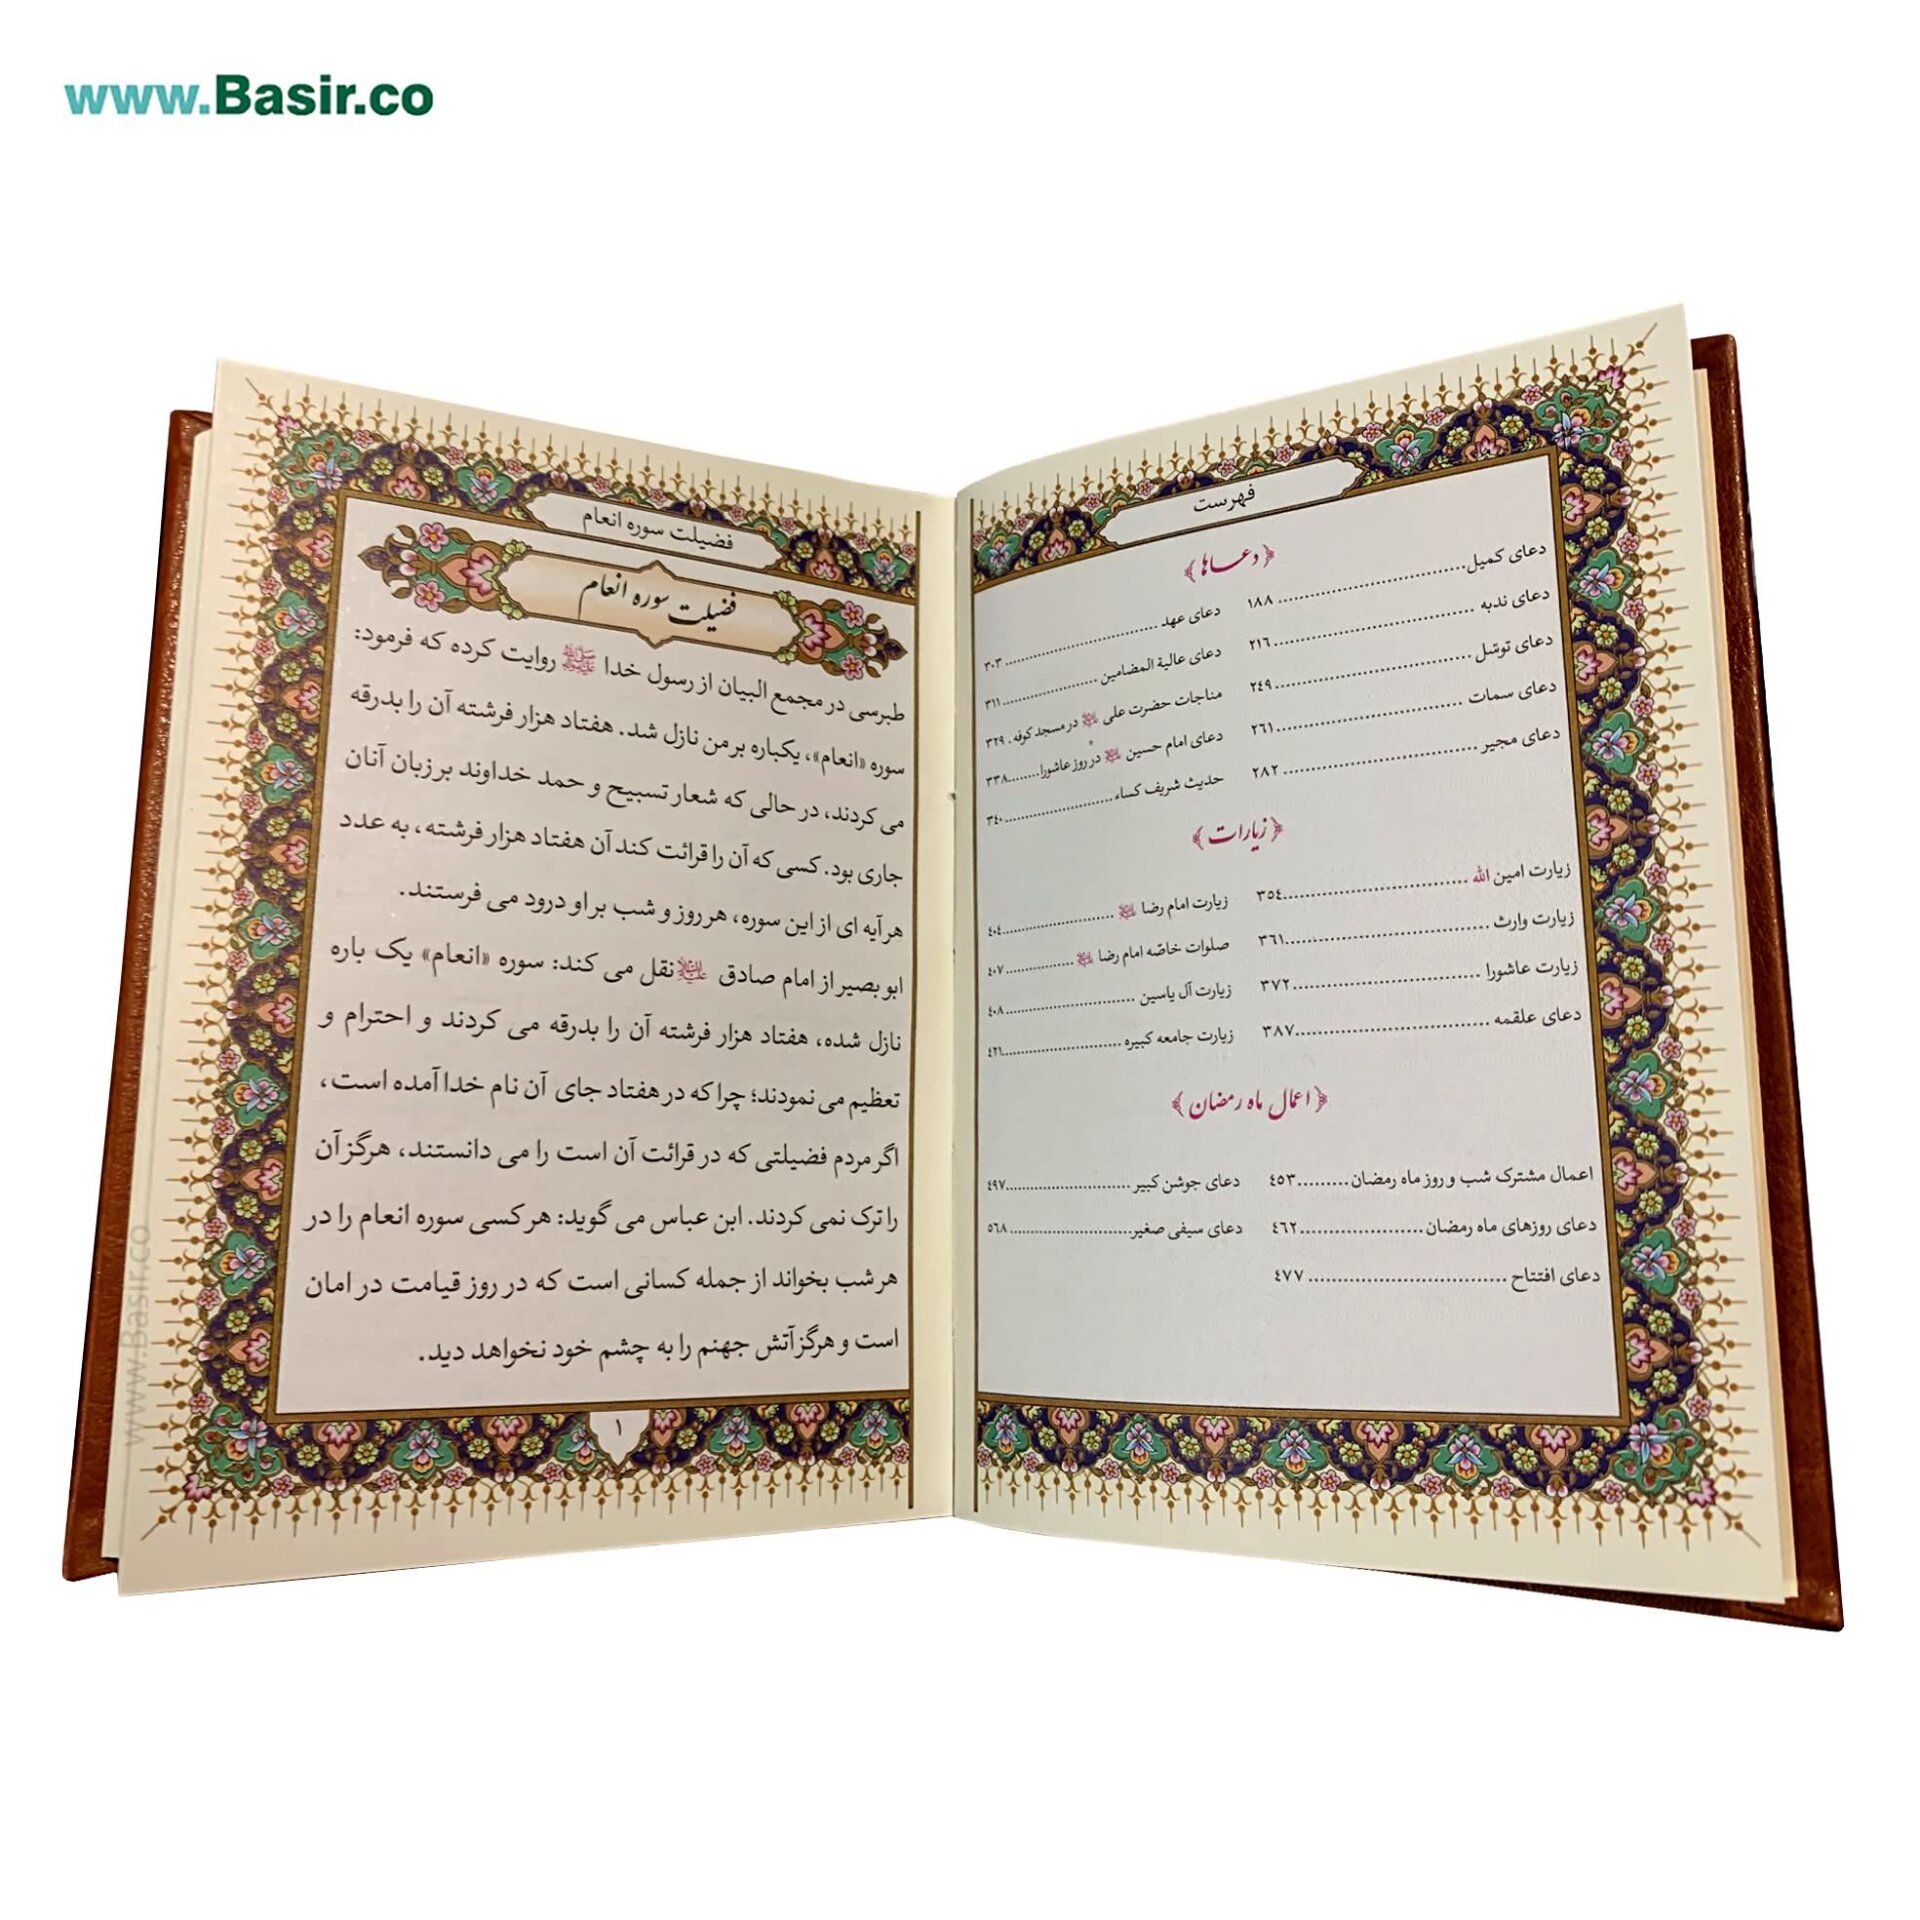 www.Basir.co
فهرست
﴿دعاها﴾
دعای کمیل ........ ۱۸۸
دعای ندبه ........ ۲۱۶
دعای توسّل ........ ۲٤۹
دعای سمات ........ ۲٦۱
دعای مجیر ........ ۲۸۲
دعای عهد ........ ۳۰۳
دعای عالیة المضامین ........ ۳۱۱
مناجات حضرت علی در مسجد کوفه . ۳۲۹
دعای امام حسین در روز عاشورا ........ ۳۳۸
حدیث شریف کساء ........ ۳٤۰
﴿زیارات﴾
زیارت امین الله ........ ۳٥٤
زیارت وارث ........ ۳٦۱
زیارت عاشورا ........ ۳۷۲
دعای علقمه ........ ۳۸۷
زیارت امام رضا ........ ٤۰٤
صلوات خاصّه امام رضا ........ ٤۰۷
زیارت آل یاسین ........ ٤۰۸
زیارت جامعه کبیره ........ ٤۲۱
﴿اعمال ماه رمضان﴾
اعمال مشترک شب و روز ماه رمضان ........ ٤٥۳
دعای روزهای ماه رمضان ........ ٤٦۲
دعای افتتاح ........ ٤۷۷
دعای جوشن کبیر ........ ٤۹۷
دعای سیفی صغیر ........ ٥٦۸
فضیلت سوره انعام
فضیلت سوره انعام
طبرسی در مجمع البیان از رسول خدا ﷺ روایت کرده که فرمود:
سوره «انعام»، یکباره بر من نازل شد. هفتاد هزار فرشته آن را بدرقه
می کردند، در حالی که شعار تسبیح و حمد خداوند بر زبان آنان
جاری بود. کسی که آن را قرائت کند آن هفتاد هزار فرشته، به عدد
هر آیه ای از این سوره، هر روز و شب بر او درود می فرستند.
ابو بصیر از امام صادق علیه‌السلام نقل می کند: سوره «انعام» یک باره
نازل شده، هفتاد هزار فرشته آن را بدرقه می کردند و احترام و
تعظیم می نمودند؛ چرا که در هفتاد جای آن نام خدا آمده است،
اگر مردم فضیلتی که در قرائت آن است را می دانستند، هرگز آن
را ترک نمی کردند. ابن عباس می گوید: هر کسی سوره انعام را در
هر شب بخواند از جمله کسانی است که در روز قیامت در امان
است و هرگز آتش جهنم را به چشم خود نخواهد دید.
۱
www.Basir.co